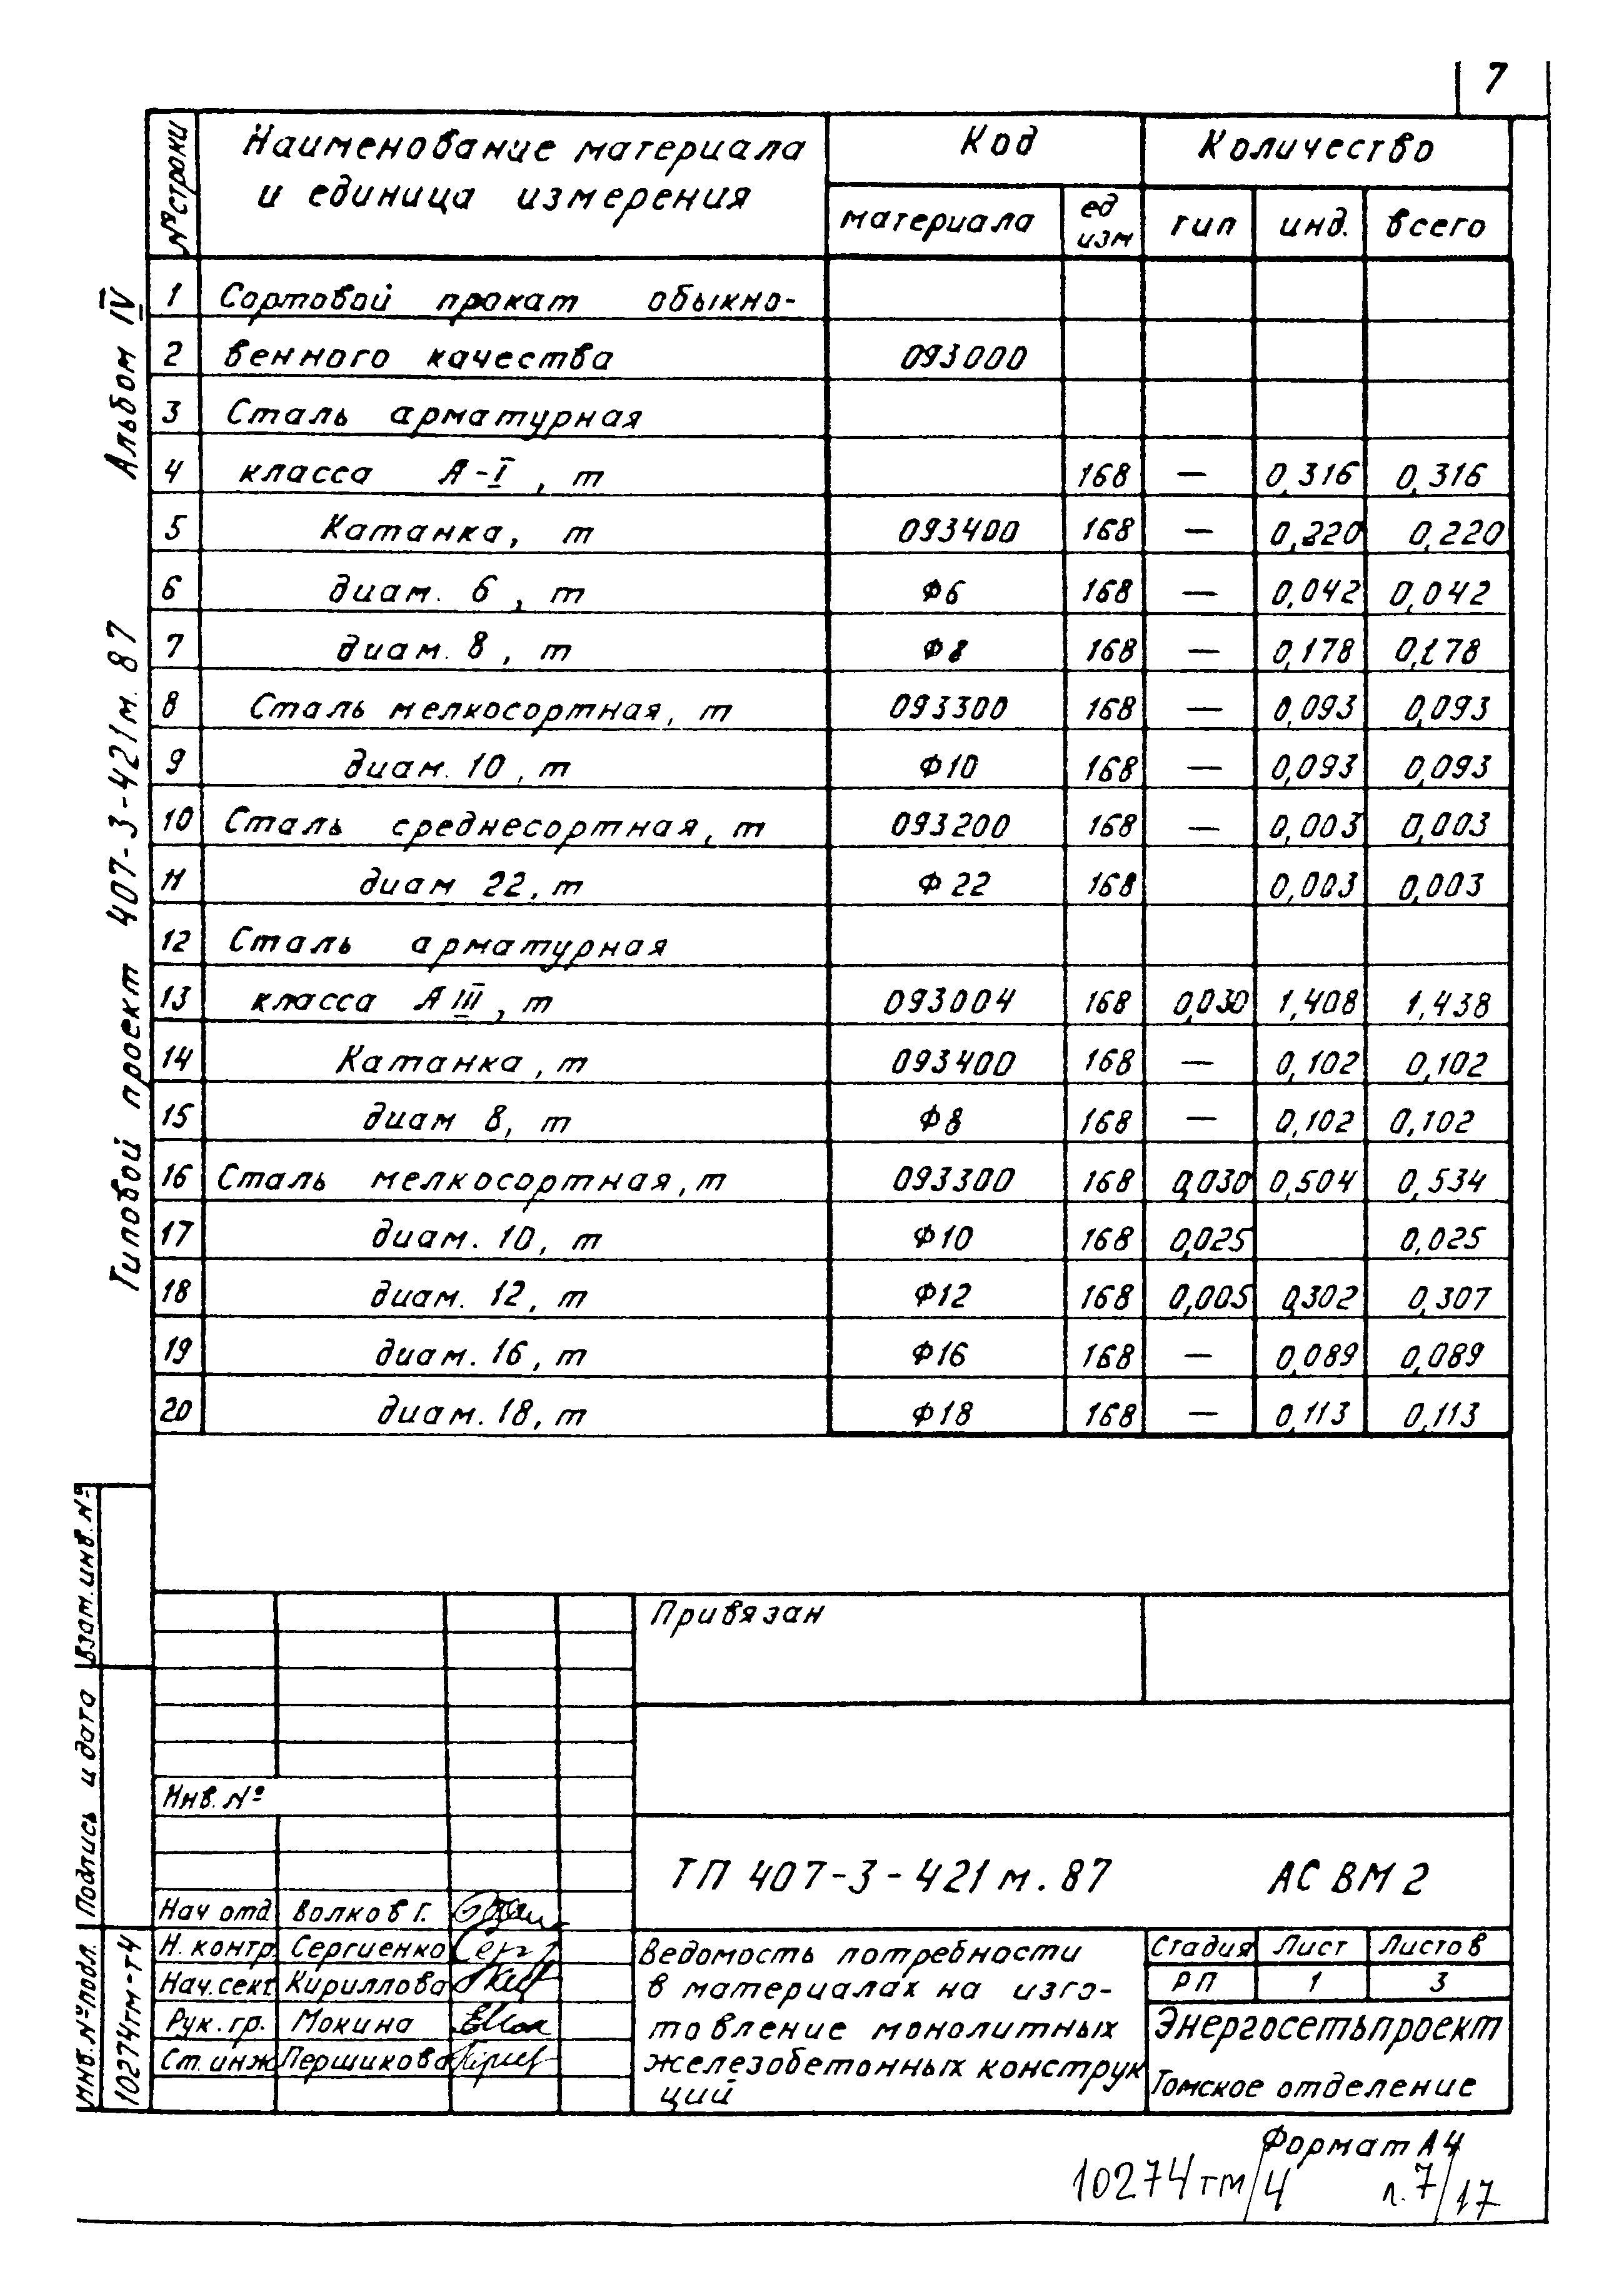 7
№ строки Наименование материала и единица измерения Код Количество
материала ед изм тип инд. всего
1 Сортовой прокат обыкно-
2 венного качества 093000
3 Сталь арматурная
4 класса А-I, т 168 — 0,316 0,316
5 Катанка, т 093400 168 — 0,220 0,220
6 диам. 6, т Ф6 168 — 0,042 0,042
7 диам. 8, т Ф8 168 — 0,178 0,178
8 Сталь мелкосортная, т 093300 168 — 0,093 0,093
9 диам. 10, т Ф10 168 — 0,093 0,093
10 Сталь среднесортная, т 093200 168 — 0,003 0,003
11 диам 22, т Ф22 168 0,003 0,003
12 Сталь арматурная
13 класса А III, т 093004 168 0,030 1,408 1,438
14 Катанка, т 093400 168 — 0,102 0,102
15 диам 8, т Ф8 168 — 0,102 0,102
16 Сталь мелкосортная, т 093300 168 0,030 0,504 0,534
17 диам. 10, т Ф10 168 0,025 0,025
18 диам. 12, т Ф12 168 0,005 0,302 0,307
19 диам. 16, т Ф16 168 — 0,089 0,089
20 диам. 18, т Ф18 168 — 0,113 0,113
Альбом IV
Типовой проект 407-3-421м. 87
Взам. инв. №
Подпись и дата
Инв. № подл.
10274тм-т4
Привязан
Инв. №
ТП 407-3-421м.87 АС ВМ2
Нач отд Волков Г.
Н. контр. Сергиенко
Нач. сект Кириллова
Рук. гр. Мокина
Ст. инж Першикова
Ведомость потребности
в материалах на изго-
товление монолитных
железобетонных конструк
ций
Стадия Лист Листов
РП 1 3
Энергосетьпроект
Томское отделение
Формат А4
10274тм/4 л. 7/17